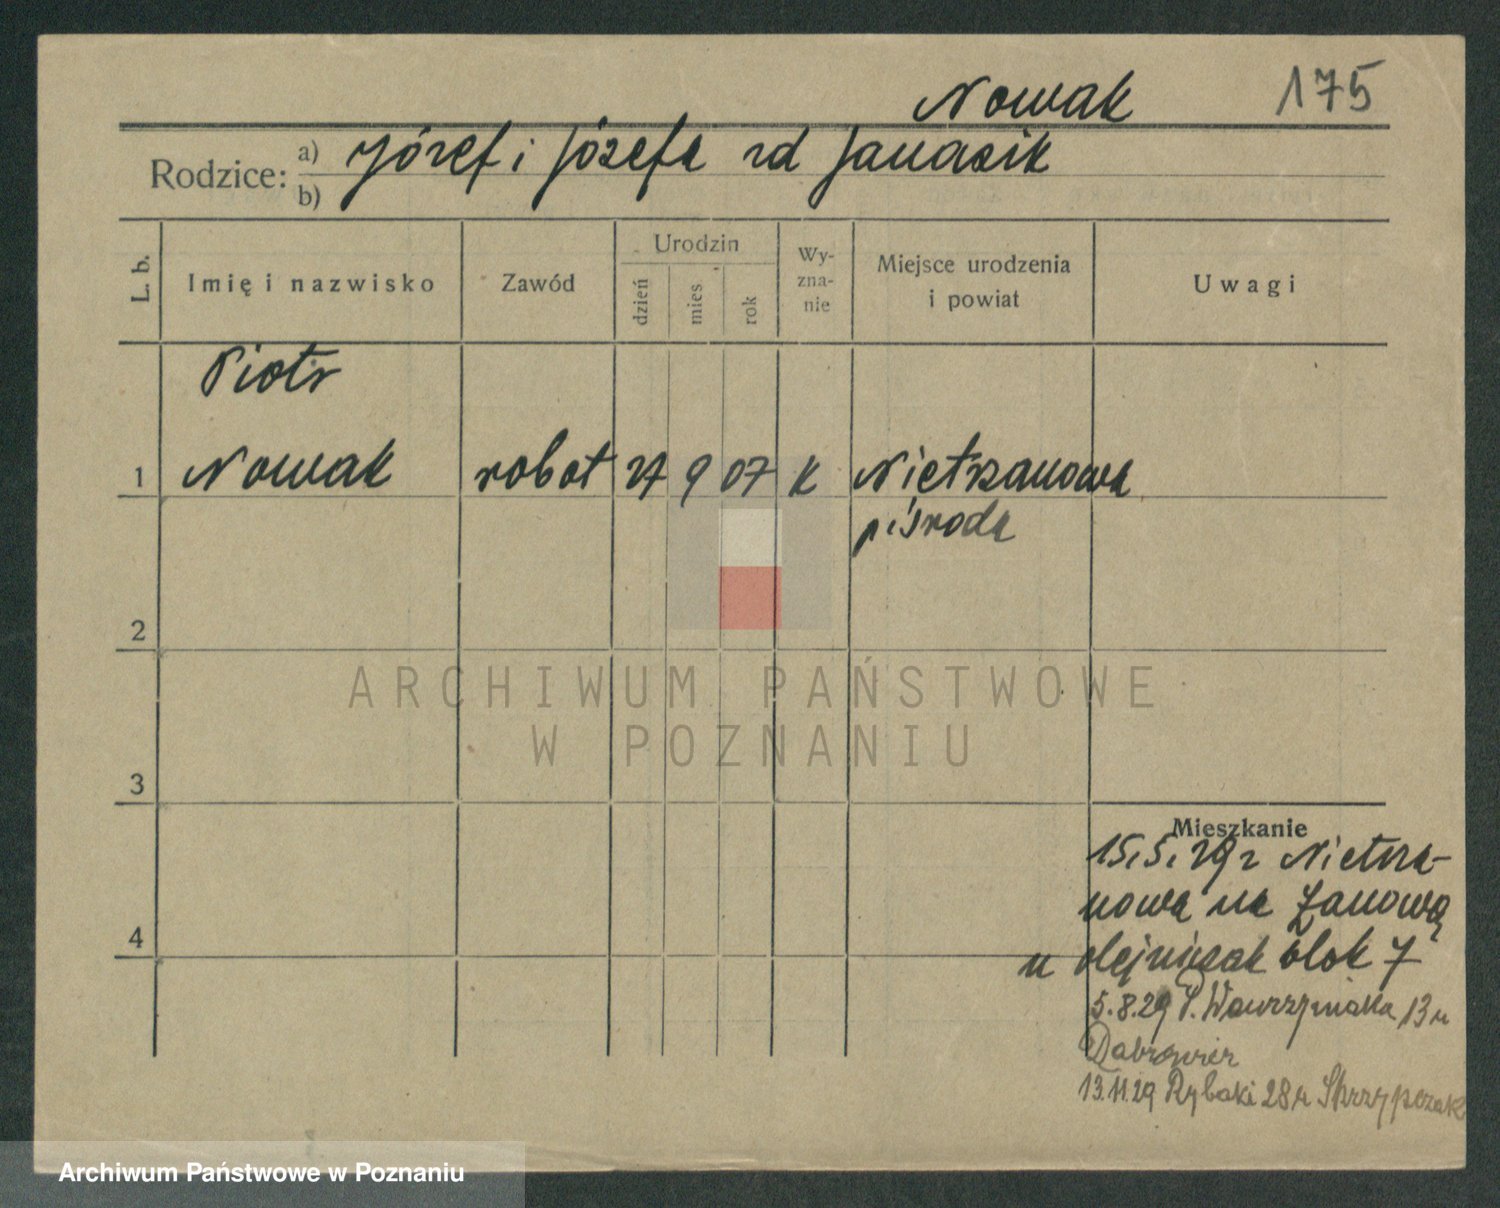 Nowak
175
Rodzice: a) Józef i Józefa zd Janasik
b)
L. b.
Imię i nazwisko
Zawód
Urodzin
dzień
mies.
rok
Wy-
zna-
nie
Miejsce urodzenia
i powiat
Uwagi
Piotr
1 Nowak robot 9 07 k Nietrzanowa
p. środa
2
ARCHIWUM PAŃSTWOWE
W POZNANIU
3
Mieszkanie
15.5.29 z Nietrza-
nowa na
u olejniczak blok 7
5.8.29 P. Wawrzyniaka 13 u
13.11.29 Rybaki 28 u Skrzypczak
4
Archiwum Państwowe w Poznaniu